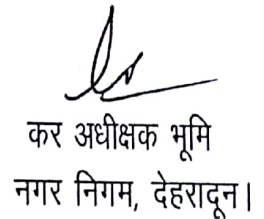 कर अधीक्षक भूमि
नगर निगम, देहरादून।